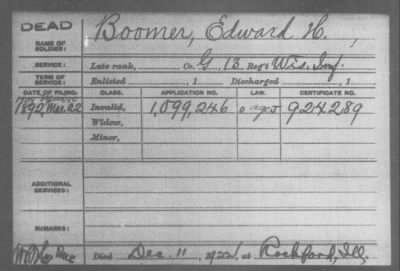 DEAD
NAME OF SOLDIER: Boomer, Edward H.,
SERVICE: Late rank, Co. G, 13 Reg't Wis. Inf.
TERM OF SERVICE: Enlisted , 1 Discharged , 1
DATE OF FILING. CLASS. APPLICATION NO. LAW. CERTIFICATE NO.
1892, Mar. 22 Invalid, 1,099,246 924289
Widow,
Minor,
ADDITIONAL SERVICES:
REMARKS:
Died Dec. 11, 1922, at Rockford, Ill,